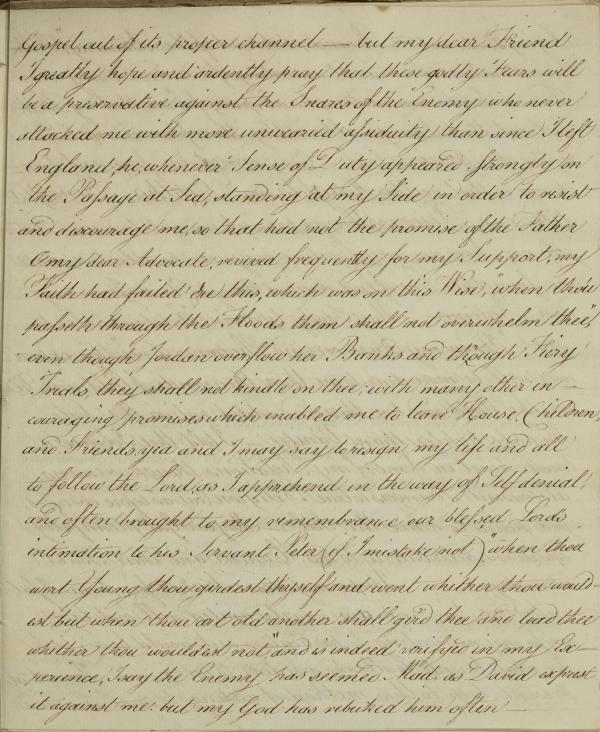 Gospel out of its proper channel — but my dear Friend
I greatly hope and ardently pray that these godly Fears will
be a preservative against the Snares of the Enemy who never
attacked me with more unwearied assiduity than since I left
England, he, whenever Sense of Duty appeared strongly on
the Passage at Sea, standing at my Side in order to resist
and discourage me, so that had not the promise of the Father
O my dear Advocate, revived frequently for my Support, my
Faith had failed ere this, which was on this Wise, "when thou
passeth through the Floods them shall not overwhelm thee",
even though Jordan overflow her Banks and through Fiery
Treals, they shall not kindle on thee; with many other in-
couraging promises which enabled me to leave House, Children,
and Friends, yea and I may say to resign my life and all
to follow the Lord, as I apprehend in the way of Self denial,
and often brought to my remembrance our blessed Lords
intimation to his Servant Peter (if I mistake not) "when thou
wert Young thou girdest thyself and went whither thou would-
est but when thou art old another shall gird thee and lead thee
whither thou wouldest not," and is indeed verifyed in my Ex-
perience, I say the Enemy has seemed Mad as David exprest
it against me: but my God has rebuked him often —